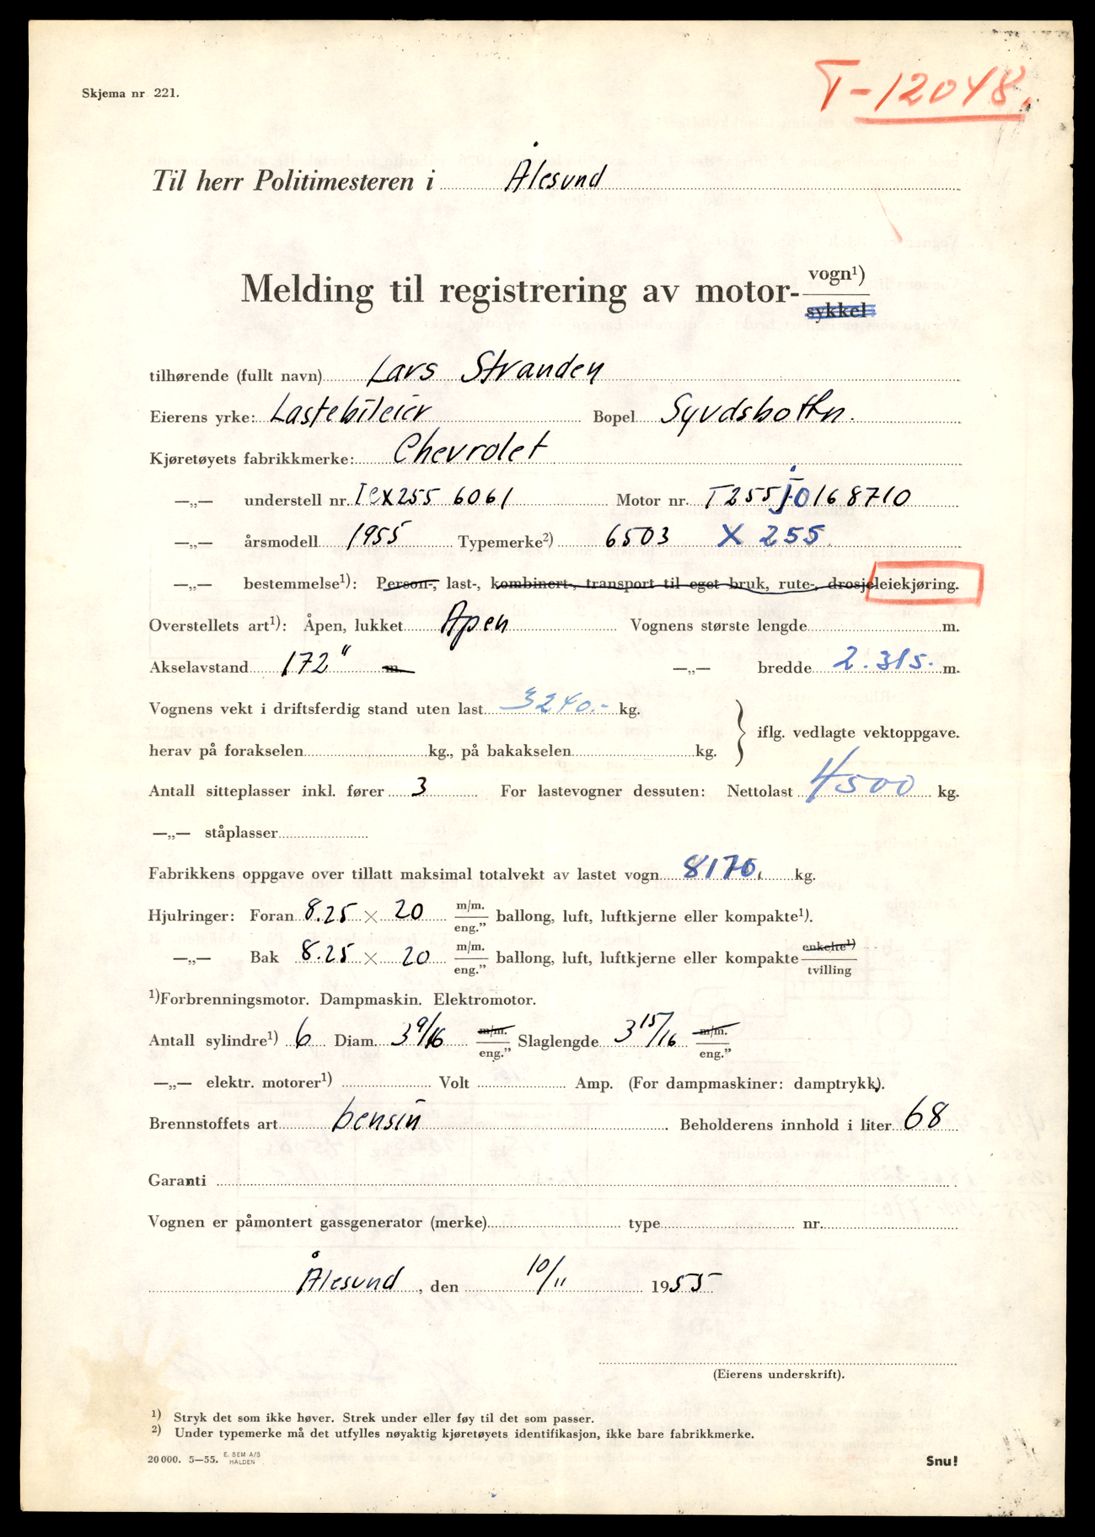 Skjema nr 221.
T-12048.
Til herr Politimesteren i Ålesund
Melding til registrering av motor- vogn¹)
sykkel
tilhørende (fullt navn) Lars Stranden
Eierens yrke: Lastebileier Bopel Syvdsbotn.
Kjøretøyets fabrikkmerke: Chevrolet
—„— understell nr. 255 6061 Motor nr. T255 J0168710
—„— årsmodell 1955 Typemerke²) 6503 X 255
—„— bestemmelse¹): Person-, last-, kombinert-, transport til eget bruk, rute-, drosje leiekjøring.
Overstellets art¹): Åpen, lukket Åpen Vognens største lengde m.
Akselavstand 172" m. —„— bredde 2.315. m.
Vognens vekt i driftsferdig stand uten last 3240.- kg.
iflg. vedlagte vektoppgave.
herav på forakselen kg., på bakakselen kg.
Antall sitteplasser inkl. fører 3 For lastevogner dessuten: Nettolast 4500 kg.
—„— ståplasser
Fabrikkens oppgave over tillatt maksimal totalvekt av lastet vogn 8170, kg.
Hjulringer: Foran 8.25 × 20 m/m. eng.” ballong, luft, luftkjerne eller kompakte¹).
—„— Bak 8.25 × 20 m/m. eng.” ballong, luft, luftkjerne eller kompakte enkelte¹) tvilling
¹)Forbrenningsmotor. Dampmaskin. Elektromotor.
Antall sylindre¹) 6 Diam. 3 9/16 m/m. eng.” Slaglengde 3 15/16 m/m. eng.”
—„— elektr. motorer¹) Volt Amp. (For dampmaskiner: damptrykk).
Brennstoffets art bensin Beholderens innhold i liter 68
Garanti
Vognen er påmontert gassgenerator (merke) type nr.
Ålesund, den 10/11 1955
(Eierens underskrift).
¹) Stryk det som ikke høver. Strek under eller føy til det som passer.
²) Under typemerke må det utfylles nøyaktig kjøretøyets identifikasjon, ikke bare fabrikkmerke.
20 000. 5—55. E. SEM A/S HALDEN
Snu!